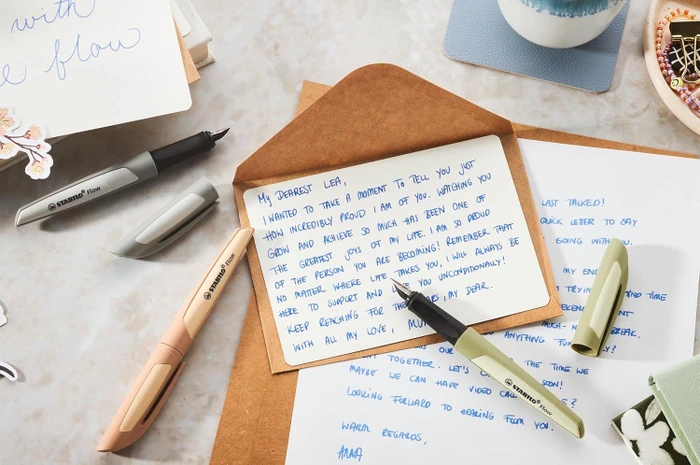 with
flow
STABILO Flow
STABILO Flow
MY DEAREST LEA,
I WANTED TO TAKE A MOMENT TO TELL YOU JUST
HOW INCREDIBLY PROUD I AM OF YOU. WATCHING YOU
GROW AND ACHIEVE SO MUCH HAS BEEN ONE OF
THE GREATEST JOYS OF MY LIFE. I AM SO PROUD
OF THE PERSON YOU ARE BECOMING! REMEMBER THAT
NO MATTER WHERE LIFE TAKES YOU, I WILL ALWAYS BE
HERE TO SUPPORT AND YOU UNCONDITIONALLY!
KEEP REACHING FOR THE MY DEAR.
WITH ALL MY LOVE,
LAST TALKED!
QUICK LETTER TO SAY
GOING WITH
MY
TRYING TIME
BREAK.
ANYTHING
OUR THE TIME WE
TOGETHER. LET'S SOON!
MAYBE WE CAN HAVE VIDEO CALL ?
LOOKING FORWARD TO HEARING FROM YOU.
WARM REGARDS,
ANNA
STABILO Flow